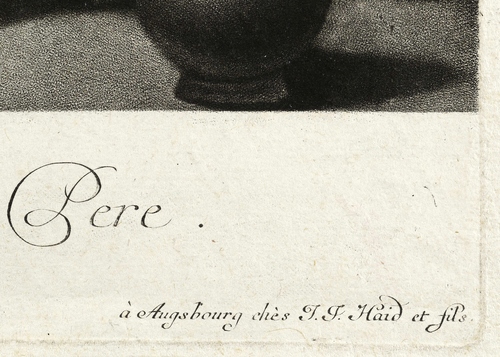 Pere .
à Augsbourg chès J. J. Haid et fils.